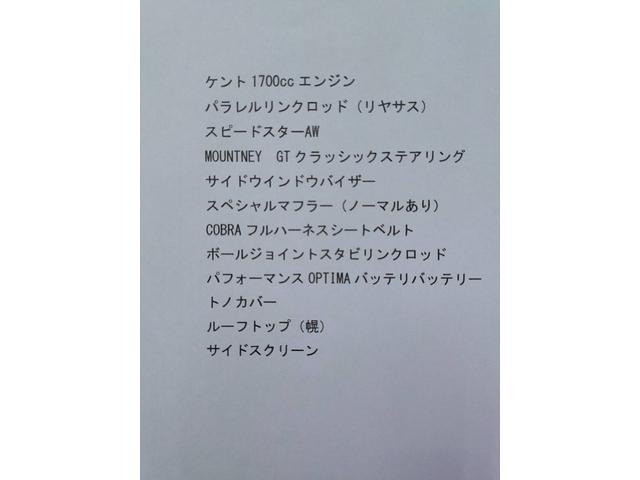 ケント1700ccエンジン
パラレルリンクロッド（リヤサス）
スピードスターAW
MOUNTNEY　GTクラッシックステアリング
サイドウインドウバイザー
スペシャルマフラー（ノーマルあり）
COBRAフルハーネスシートベルト
ボールジョイントスタビリンクロッド
パフォーマンスOPTIMAバッテリバッテリー
トノカバー
ルーフトップ（幌）
サイドスクリーン